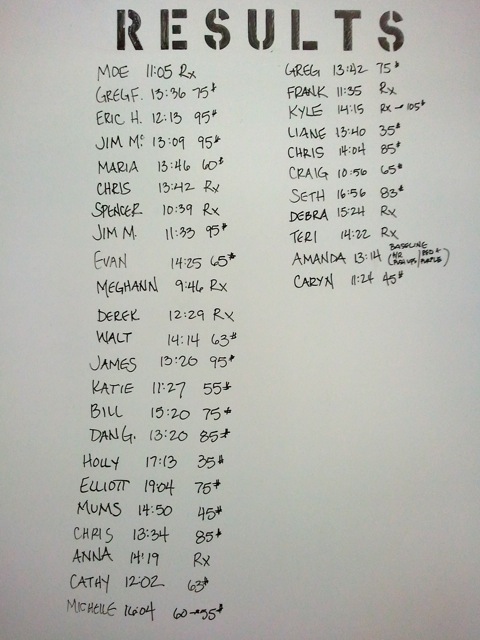 RESULTS
MOE 11:05 Rx
GREG F. 13:36 75#
ERIC H. 12:13 95#
JIM Mc 13:09 95#
MARIA 13:46 60#
CHRIS 13:42 Rx
SPENCER 10:39 Rx
JIM M. 11:33 95#
EVAN 14:25 65#
MEGHANN 9:46 Rx
DEREK 12:29 Rx
WALT 14:14 63#
JAMES 13:20 95#
KATIE 11:27 55#
BILL 15:20 75#
DAN G. 13:20 85#
HOLLY 17:13 35#
ELLIOTT 19:04 75#
MUMS 14:50 45#
CHRIS 13:34 85#
ANNA 14:19 Rx
CATHY 12:02 63#
MICHELLE 16:04 60→55#
GREG 13:42 75#
FRANK 11:35 Rx
KYLE 14:15 Rx→105#
LIANE 13:40 35#
CHRIS 14:04 85#
CRAIG 10:56 65#
SETH 16:56 83#
DEBRA 15:24 Rx
TERI 14:22 Rx
AMANDA 13:14 BASELINE
(H/R PUSHUPS / RED + PURPLE)
CARYN 11:24 45#